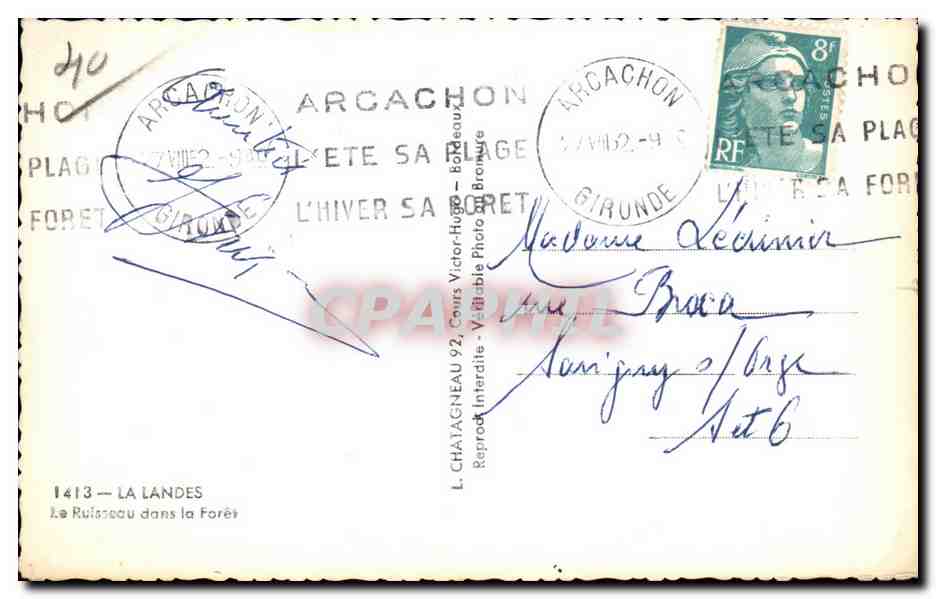 40
ARCACHON
7 VIII 52
GIRONDE
ARCACHON
L'ETE SA PLAGE
L'HIVER SA FORET
ARCACHON
7 VIII 52.-9
GIRONDE
8f
POSTES
RF
ARCACHON
L'ETE SA PLAG
L'HIVER SA FORE
HO
PLAGE
FORET
Madame
rue Broca
Savigny s/Orge
S et O
L. CHATAGNEAU 92, Cours Victor-Hugo - Bordeaux
Reprod. Interdite - Véritable Photo au Bromure
CPAPHIL
1413 — LA LANDES
Le Ruisseau dans la Forêt